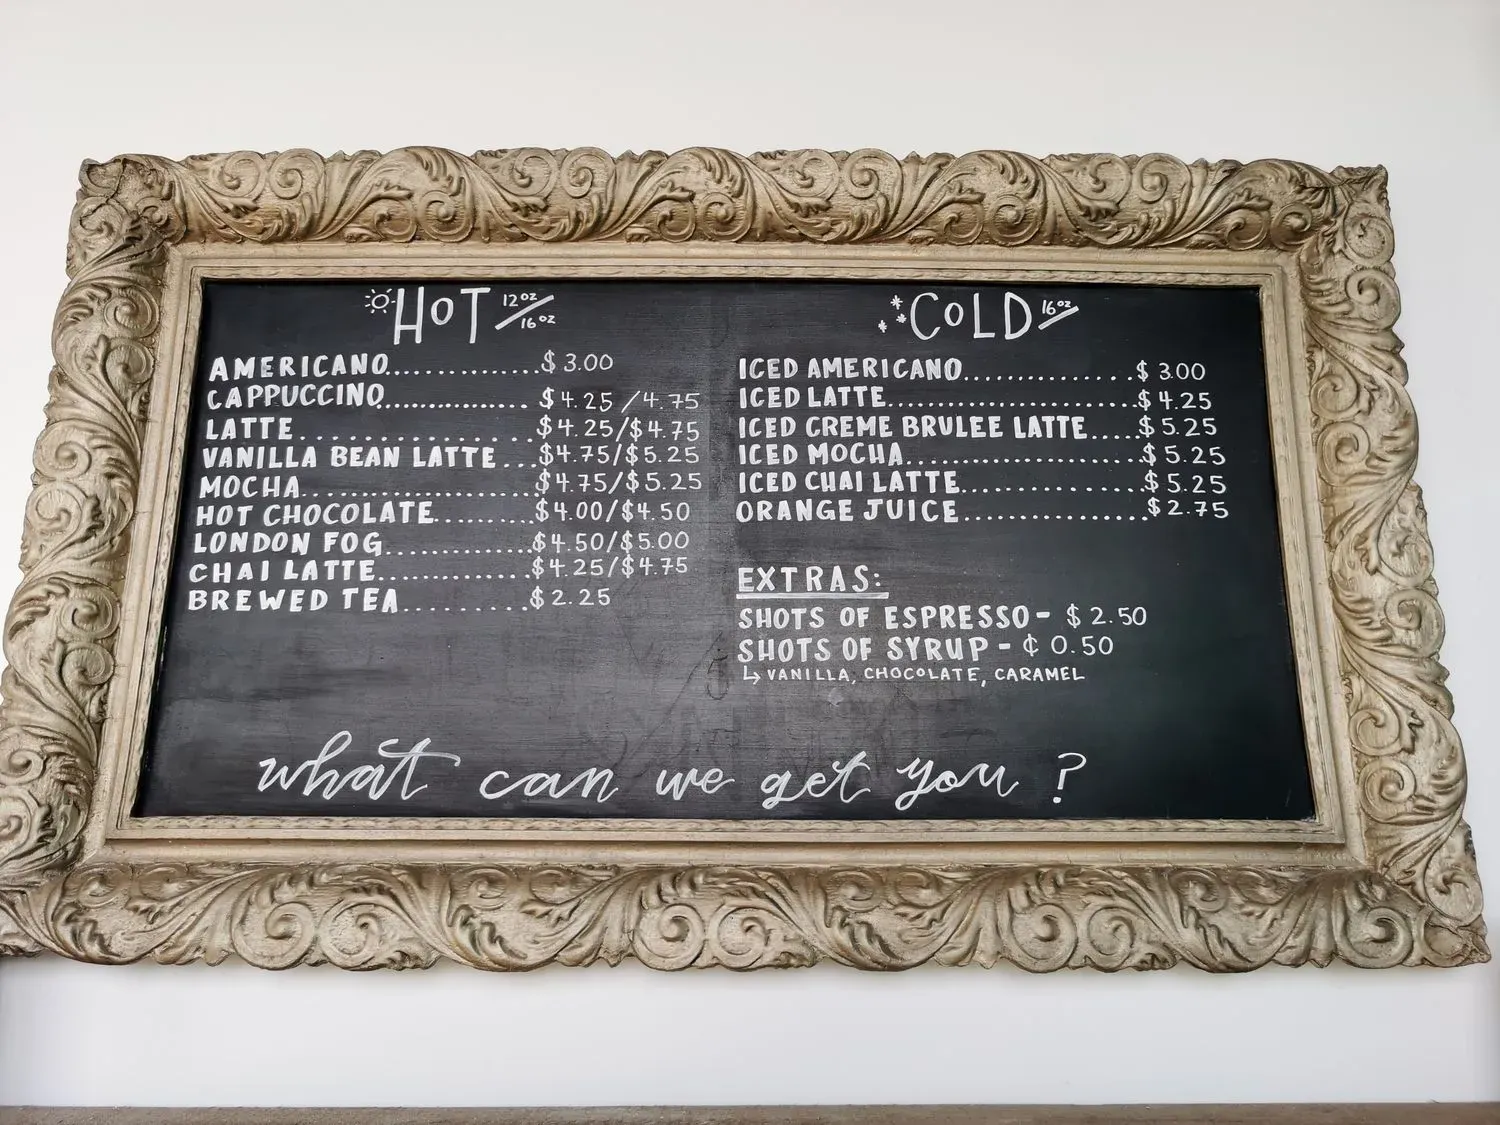 HOT 12oz/16oz
AMERICANO..................$3.00
CAPPUCCINO.................$4.25/4.75
LATTE......................$4.25/$4.75
VANILLA BEAN LATTE...$4.75/$5.25
MOCHA......................$4.75/$5.25
HOT CHOCOLATE..........$4.00/$4.50
LONDON FOG...............$4.50/$5.00
CHAI LATTE................$4.25/$4.75
BREWED TEA..........$2.25
COLD 16oz/
ICED AMERICANO...............$3.00
ICED LATTE..........................$4.25
ICED CREME BRULEE LATTE.....$5.25
ICED MOCHA........................$5.25
ICED CHAI LATTE..................$5.25
ORANGE JUICE...................$2.75
EXTRAS:
SHOTS OF ESPRESSO - $2.50
SHOTS OF SYRUP - ¢0.50
↳ VANILLA, CHOCOLATE, CARAMEL
what can we get you?